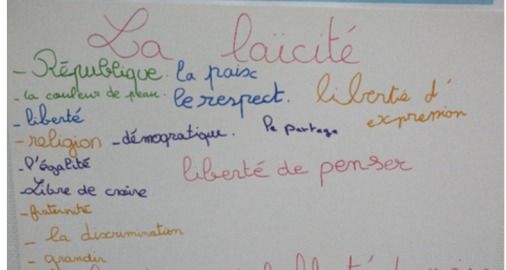 La laïcité
- République. la paix
- la couleur de peau. le respect. liberté d'
- liberté expression
- religion - démogratique. le partage
- l'égalité liberté de penser
- Libre de croire
- fraternité
- la discrimination
- grandir